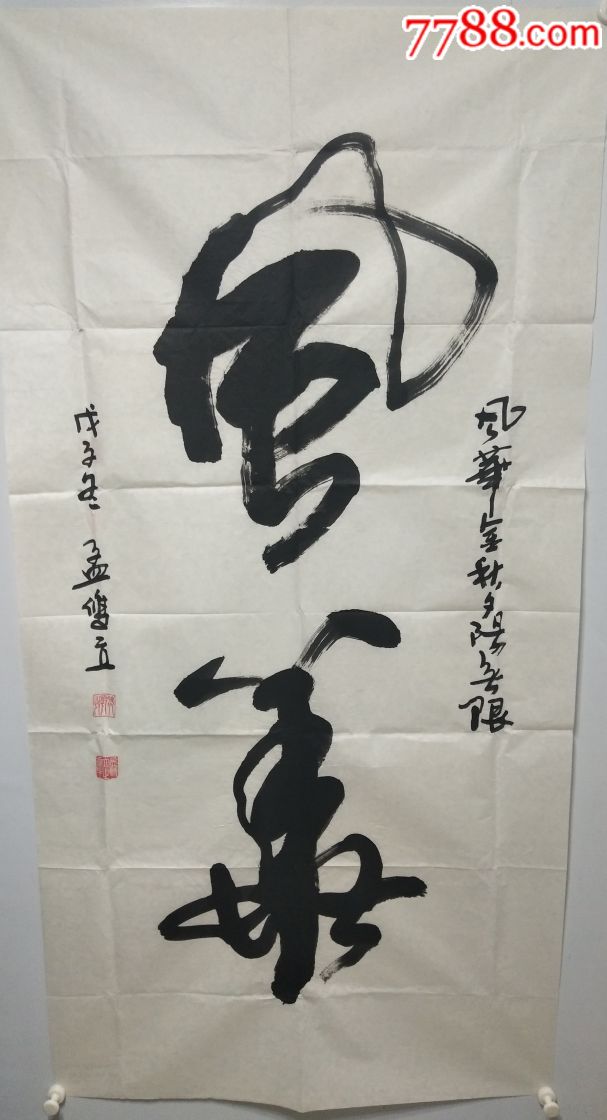 7788.com
風華金秋夕陽無限
風華
戊子冬 孟隻立